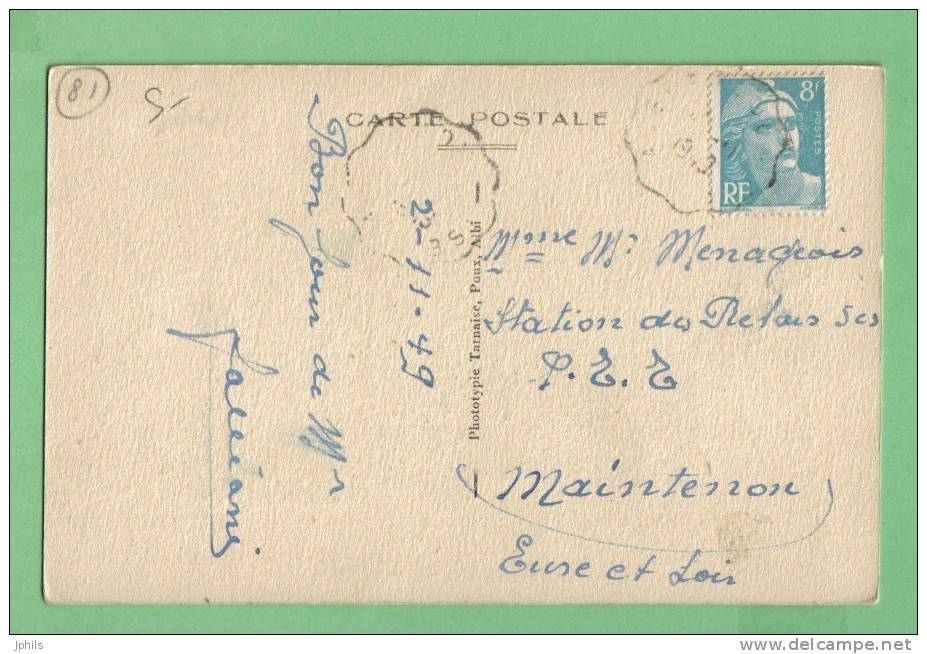 81
5-
CARTE POSTALE
8F
POSTES
RF
Bonjour de Mr
2-11-49
Phototypie Tarnaise, Poux, Albi
Mme Mr Menageois
Station des Relais
P.E.E
Maintenon
Eure et Loir
jphils
www.delcampe.net